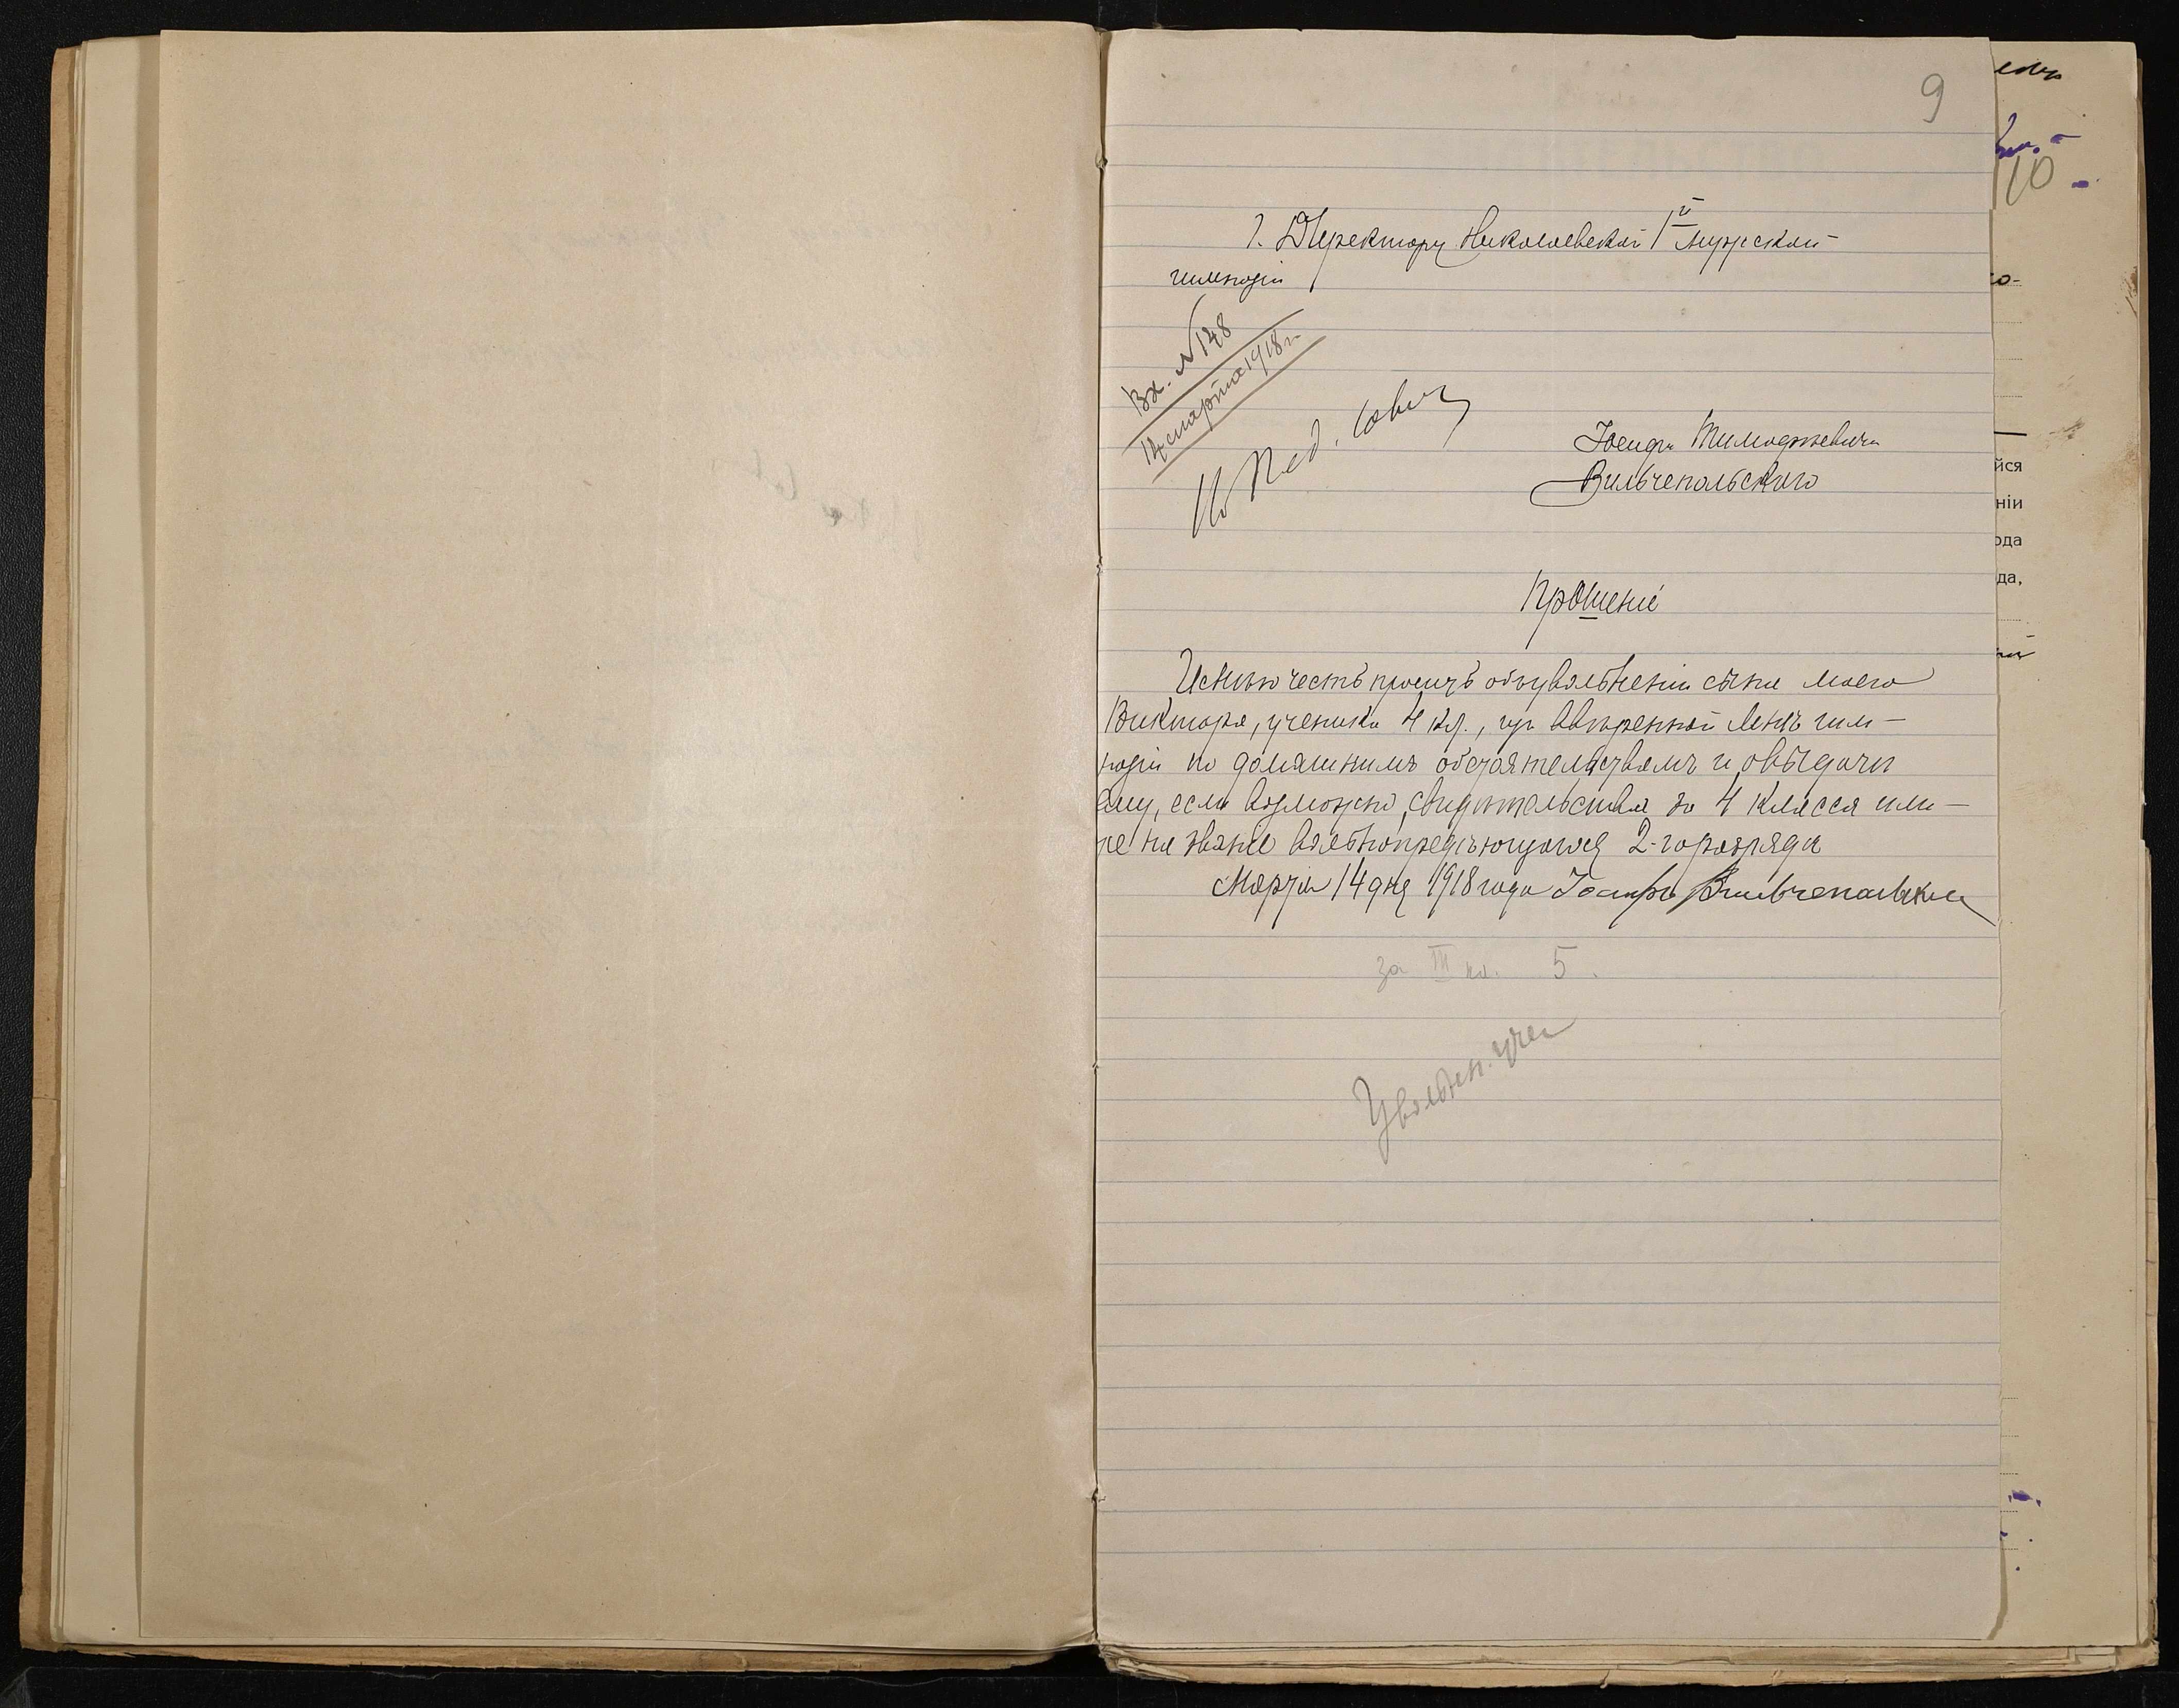 9
Г. Директору Николаевской 1й мужской
гимназіи
Вх. № 148
14 марта 1918 г.
Въ Пед. Совѣт
Іосифа Тимофѣевича
Вильчепольскаго
Прошеніе
Имѣю честь просить объ увольненіи сына моего
Виктора, ученика 4 кл., изъ ввѣренной Вамъ гим-
назіи по домашнимъ обстоятельствамъ и о выдачи
ему, если возможно, свидѣтельства за 4 класса или-
же на званіе вольноопредѣляющагося 2-го разряда
Марта 14 дня 1918 года Іосифъ Вильчепольскій
за III кл. 5.
Увольнен. учен
10
о-
йся
ніи
ода
да,